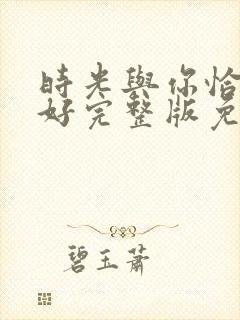 時光與你恰
好完整版免
碧玉蕭